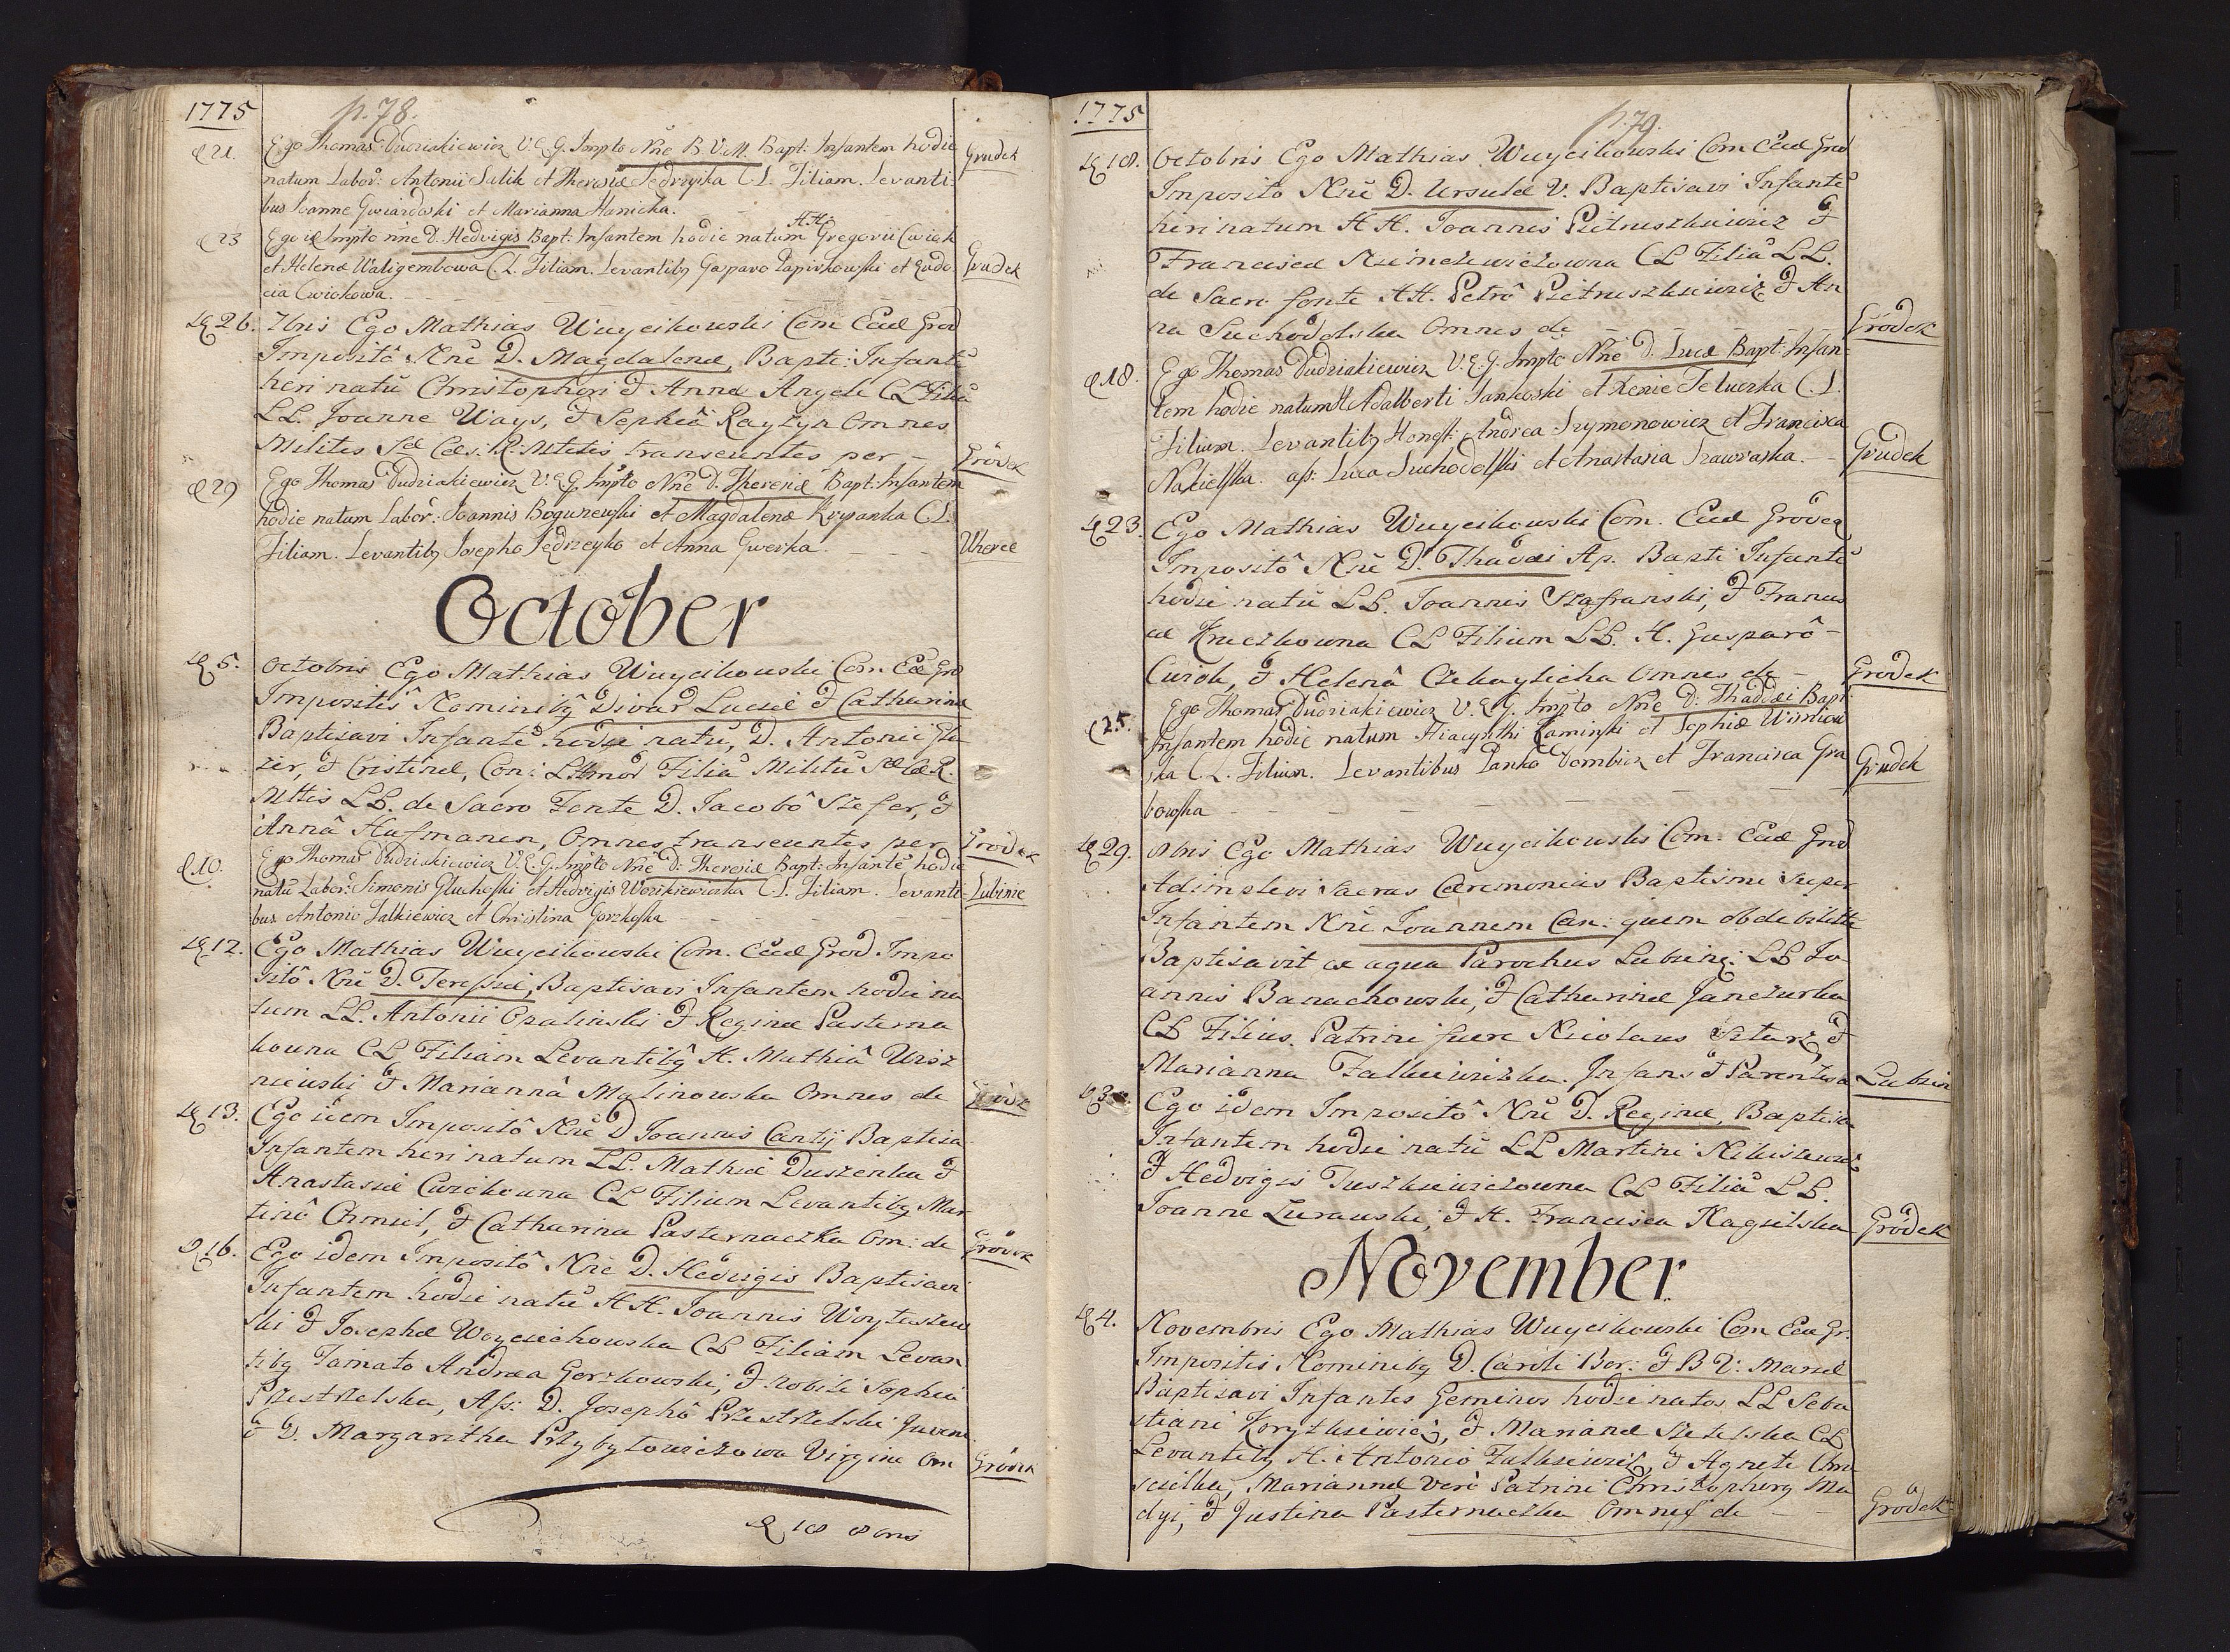 1775
p. 78.
d 21. Ego Thomas Dudriakiewicz V. E. G. Impto Nñe B. V. M. Bapt: Infantem hodie Grudek
natum Labor: Antonii Salik et Theresiæ Jedrzyska C. L. Filiam. Levanti-
bus Joanne Gwiazdoski et Marianna Hanicka.
d 23 Ego id Impto nñe D. Hedvigis Bapt: Infantem hodie natum H.H. Gregorii Cwiok
et Helenæ Waligembowa C. L. Filiam. Levantibq Gasparo Papirkowski et Eudo Grudek
cia Cwiokowa.
d 26. 7bris Ego Mathias Wuycikowski Com Eccl Grod
Impositô Nñe D. Magdalenæ, Bapti: Infantē
heri natū Christopheri & Annæ Angeli CL Filiā
LL. Joanne Ways, & Sophiâ Raytyn Omnes
Milites Sæ Cæs: R. Mttis transeuntes per - Grodek
d 29 Ego Thomas Dudriakiewicz V. E. G. Impto Nñe D. Theresiæ Bapt: Infantem
hodie natum Labor: Joannis Bogunewski et Magdalenæ Krysanka C. L.
Filiam. Levantibq Josepho Jędrzeyko et Anna Gwerka. Uherce
October
d 5. Octobris Ego Mathias Wuycikowski Com Eccl Gro
Impositis Nominibq Divar Luciæ & Catharinæ
Baptisavi Infantē hodie natū, D. Antonii Gla
zer, & Cristinæ, Coni: Ltimor Filiā Militū Sæ CæR.
Mttis LB. de Sacro Fonte D. Jacobô Szefer, &
Annâ Hufmanen, Omnes transeuntes per Grodek
d 10. Ego Thomas Dudriakiewicz V. E. G. Impto Nñe D: Theresiæ Bapt: Infantē hodie
natū Labor: Simonis Gluchoski et Hedvigis Worikiewiczka C. L. Filiam. Levanti- Lubinie
bus Antonio Falkiewicz et Christina Gorzkoska
d 12. Ego Mathias Wuycikowski Com. Eccl Grod. Impo
sitô Nñe D. Teressiæ, Baptisavi Infantem hodie na
tum LL. Antonii Opalinski & Reginæ Pasterna
kowna CL Filiam Levantibq H. Mathiâ Wisz
niewski & Mariannâ Malinowska Omnes de Grodek
d 13. Ego idem Impositô Nñe D Joannis Cantij Baptisa
Infantem heri natum LL. Mathiæ Duszenka &
Anastasiæ Cwiekowna CL Filium Levantibq Mar
tinô Chmiel, & Catharina Pasternaczka Om: de Grodek
d 16. Ego idem Impositô Nñe D. Hedvigis Baptisavi
Infantem hodie natū HH. Joannis Woytuszew
ski & Josephæ Woyciechowska CL Filiam Levan
tibq Famato Andræa Gorzkowski, & Nobili Sophia
Przestrzelska, Ass: D. Josephô Przestrzelski Juvene
& D. Margaritha Przybytowiczowa Virgine Om Grodek
d 18 8bris
1775
p. 79.
d 18. Octobris Ego Mathias Wuycikowski Com Eccl Grod
Impositô Nñe D. Ursulæ V. Baptisavi Infantē
heri natum HH. Joannis Pietruszkiewicz &
Franciscæ Niemczewiczowna CL Filiā LL.
de Sacro fonte HH. Petrô Pietruszkiewicz & An
na Suchodolska Omnes de Grodek
d 18. Ego Thomas Dudriakiewicz V. E. G. Impto Nñe D. Lucæ Bapt: Infan-
tem hodie natum H Adalberti Jankoski et Xeniæ Teluczka C. L.
Filium. Levantibq Honest: Andrea Szymonowicz et Francisca
Nakielska. ass: Luca Suchodolski et Anastasia Szawraska. Grudek
d 23. Ego Mathias Wuycikowski Com. Eccl Grodec
Impositô Nñe D. Thadæi Ap. Bapti Infantē
hodie natū LB. Joannis Szafranski, & Francis
cæ Kruczkowna CL Filium LB. H. Gasparô -
Cwiok, & Helenâ Czekaylicha Omnes de - Grodek
d 25. Ego Thomas Dudriakiewicz V. E. G. Impto Nñe D: Thaddæi Bapt:
Infantem hodie natum Hiacynthi Kaminski et Sophiæ Wisniow
ska C. L. Filium. Levantibus Panko Dombicz et Francisca Gra Grudek
bowska
d 29. 8bris Ego Mathias Wuycikowski Com. Eccl Grod
Adimplevi Sacras Cæremonias Baptismi super
Infantem Nñe Joannem Can: quem ob debilitte
Baptisavit ex aqua Parochus Lubieni: LB Jo
annis Banachowski, & Catharinæ Janczurka
CB Filius. Patrini fuere Nicolaus Sztarz &
Marianna Falkiewiczka. Infans & Parentes a Lubien
d 3. Ego idem Impositô Nñe D. Reginæ, Baptisa
Infantem hodie natū LL Martini Nikiszewicz
& Hedvigis Tuszkiewiczowna CL Filiā LB.
Joanne Zurawski, & H. Francisca Nagielska Grodek
November
d 4. Novembris Ego Mathias Wuycikowski Com Eccl Gr.
Impositis Nominibq D. Caroli Bor: & B V: Mariæ
Baptisavi Infantes Geminos hodie natos LL Seba
stiani Korytkiewicz, & Marianæ Szetelska CL
Levantibq H. Antonio Falkiewicz, & Agnete Chm
scielka, Mariannæ verò Patrini Christophorq Ma
dyi, & Justina Pasternaczka Omnes de Grodek